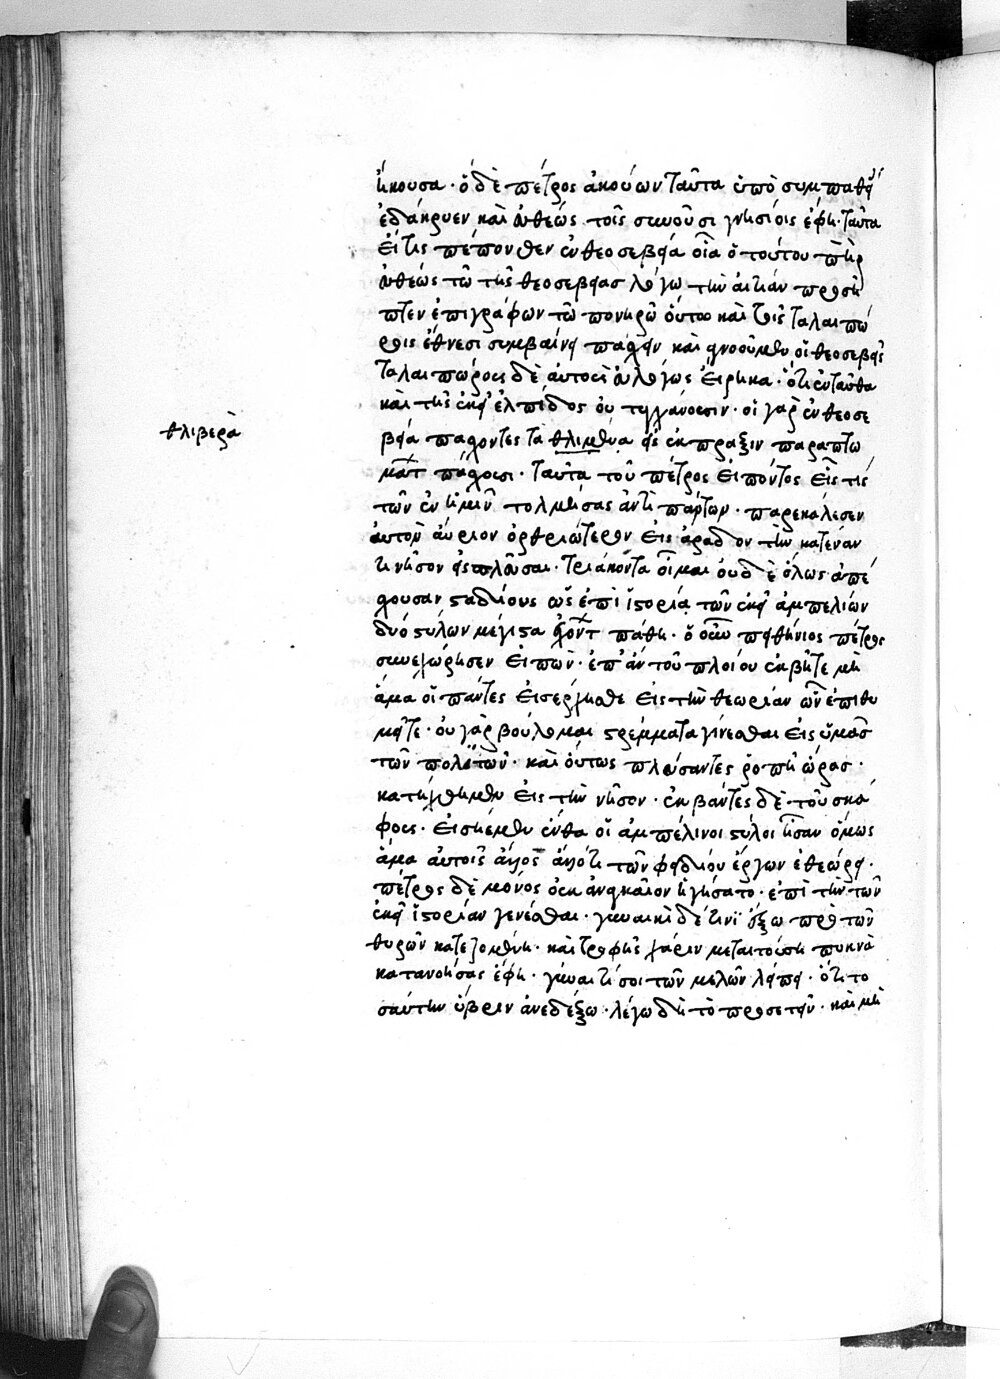 ἤκουσα · ὁ δὲ πέτρος ἀκούων ταῦτα ὑπὸ συμπαθεί
ἐδάκρυεν καὶ εὐθέως τοῖς συνοῦσι γνησίοις ἔφη · ταῦτα
εἴ τις πέπονθεν ἐν θεοσεβεία οἷα ὁ τούτου πὴρ
εὐθέως τῶ τῆς θεοσεβείας λόγω τὴν αἰτίαν προσῆ
πτεν ἐπιγράφων τῶ πονηρῶ οὕτω καὶ τοῖς ταλαιπώ
ροις ἔθνεσι συμβαίνει παθεῖν καὶ ἀγνοοῦμεν οἱ θεοσεβεῖς
ταλαιπώρους δὲ αὐτοὺς εὐλόγως εἴρηκα · ὅτι ἐνταῦθα
καὶ τῆς ἐκεῖ ἐλπίδος οὐ τυγχάνουσιν · οἱ γὰρ ἐν θεοσε
θλιβερὰ
βεία παθόντες τὰ θλιμένα εἰς ἔκπραξιν παραπτω
μάτ πάθουσι · ταῦτα τοῦ πέτρος εἰπόντος εἷς τις
τῶν ἐν ἡμῖν τολμήσας ἀντὶ πάντων · παρεκάλεσεν
αὐτὸν αὔριον ὀρθριώτερον εἰς ἄραδον τὴν κατέναν
τι νῆσον εἰσπλεῦσαι · τριάκοντα οἶμαι οὐδὲ ὅλως ἀπέ
χουσαν σταδίους ὡς ἐπὶ ἱστορία τῶν ἐκεῖ ἀμπελίων
δύο στύλων μέγιστα ἐχόντ πάθη · ὁ οὖν πειθήνιος πέτρος
συνεχώρησεν εἰπὼν · ἐπ' ἂν τοῦ πλοίου ἐκβῆτε μὴ
ἅμα οἱ πάντες εἰσέρχησθε εἰς τὴν θεωρίαν ὧν ἐπιθυ
μεῖτε · οὐ γὰρ βούλομαι στρέμματα γίνεσθαι εἰς ὑμᾶς
τῶν πολιτῶν · καὶ οὕτως πλεύσαντες ῥοπῆ ὥρας ·
κατήχθημεν εἰς τὴν νῆσον · ἐκβάντες δὲ τοῦ σκά
φους · εἰσήειμεν ἔνθα οἱ ἀμπέλινοι στύλοι ἦσαν ὅμως
ἅμα αὐτοῖς ἄλλος ἄλλό τι τῶν φειδίου ἔργων ἐθεώρει ·
πέτρος δὲ μόνος οὐκ ἀναγκαῖον ἡγήσατο · ἐπὶ τὴν τῶν
ἐκεῖ ἱστορίαν γενέσθαι · γυναικὶ δέ τινι ἔξω πρὸ τῶν
θυρῶν κατεζομένη · καὶ τροφῆς χάριν μεταιτούση πυκνὰ
κατανοήσας ἔφη · γύναι τί σοι τῶν μελῶν λείπει · ὅτι το
σαύτην ὕβριν ἀνεδέξω · λέγω δὴ τὸ προσετεῖν · καὶ μὴ